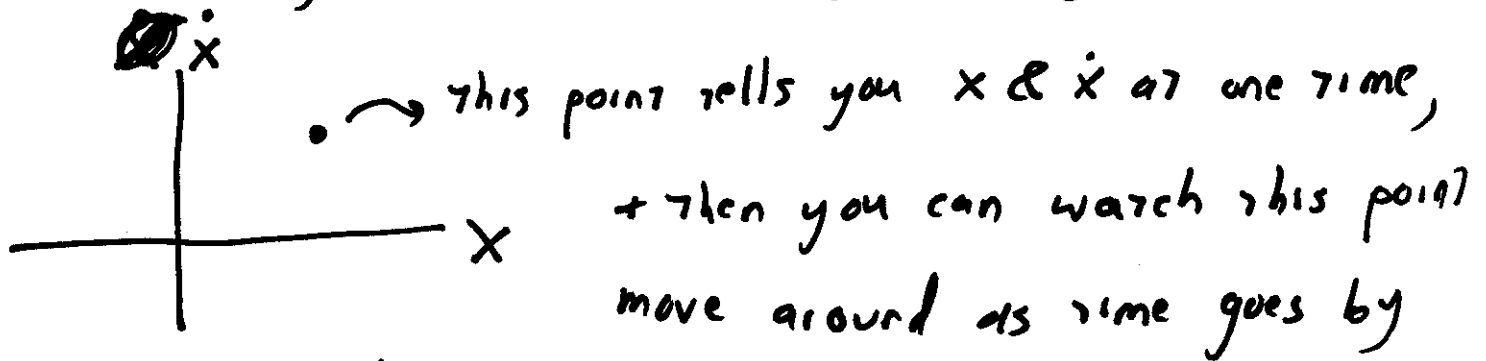 ẋ
this point tells you x & ẋ at one time,
+ then you can watch this point
X
move around as time goes by